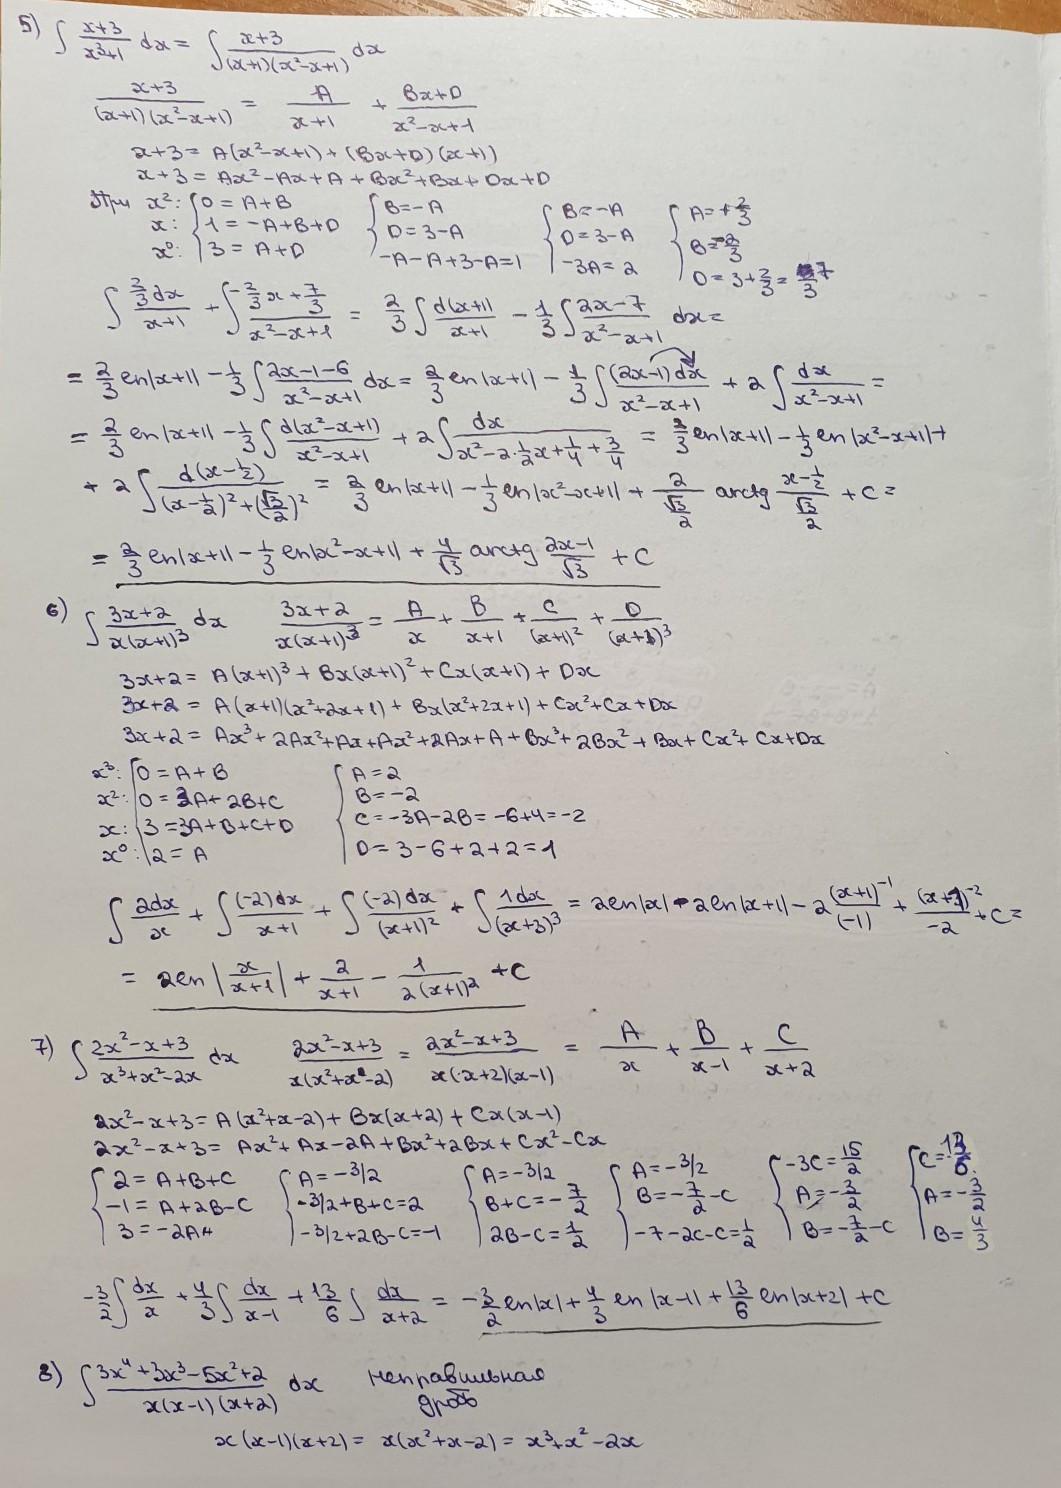 5) ∫ (x+3)/(x³+1) dx = ∫ (x+3)/((x+1)(x²-x+1)) dx
(x+3)/((x+1)(x²-x+1)) = A/(x+1) + (Bx+D)/(x²-x+1)
x+3 = A(x²-x+1) + (Bx+D)(x+1)
x+3 = Ax²-Ax+A+Bx²+Bx+Dx+D
При x²: { 0 = A+B { B=-A { B=-A { A=+2/3
x: 1 = -A+B+D D=3-A D=3-A B=-2/3
x⁰: 3 = A+D -A-A+3-A=1 -3A=2 D=3+2/3=7/3
∫ (2/3 dx)/(x+1) + ∫ (-2/3 x+7/3)/(x²-x+1) = 2/3 ∫ d(x+1)/(x+1) - 1/3 ∫ (2x-7)/(x²-x+1) dx =
= 2/3 ln|x+1| - 1/3 ∫ (2x-1-6)/(x²-x+1) dx = 2/3 ln|x+1| - 1/3 ∫ ((2x-1)dx)/(x²-x+1) + 2 ∫ dx/(x²-x+1) =
= 2/3 ln|x+1| - 1/3 ∫ d(x²-x+1)/(x²-x+1) + 2 ∫ dx/(x²-2·1/2x+1/4+3/4) = 2/3 ln|x+1| - 1/3 ln|x²-x+1| +
+ 2 ∫ d(x-1/2)/((x-1/2)²+(√3/2)²) = 2/3 ln|x+1| - 1/3 ln|x²-x+1| + 2/(√3/2) arctg (x-1/2)/(√3/2) + C =
= 2/3 ln|x+1| - 1/3 ln|x²-x+1| + 4/√3 arctg (2x-1)/√3 + C
6) ∫ (3x+2)/(x(x+1)³) dx (3x+2)/(x(x+1)³) = A/x + B/(x+1) + C/(x+1)² + D/(x+1)³
3x+2 = A(x+1)³ + Bx(x+1)² + Cx(x+1) + Dx
3x+2 = A(x+1)(x²+2x+1) + Bx(x²+2x+1) + Cx²+Cx+Dx
3x+2 = Ax³+2Ax²+Ax+Ax²+2Ax+A+Bx³+2Bx²+Bx+Cx²+Cx+Dx
x³: { 0 = A+B { A=2
x²: 0 = 3A+2B+C B=-2
x: 3 = 3A+B+C+D C=-3A-2B=-6+4=-2
x⁰: 2 = A D=3-6+2+2=1
∫ 2dx/x + ∫ (-2)dx/(x+1) + ∫ (-2)dx/(x+1)² + ∫ 1dx/(x+3)³ = 2ln|x| - 2ln|x+1| - 2 (x+1)⁻¹/(-1) + (x+1)⁻²/-2 + C =
= 2ln|x/(x+1)| + 2/(x+1) - 1/(2(x+1)²) + C
7) ∫ (2x²-x+3)/(x³+x²-2x) dx (2x²-x+3)/(x(x²+x-2)) = (2x²-x+3)/(x(x+2)(x-1)) = A/x + B/(x-1) + C/(x+2)
2x²-x+3 = A(x²+x-2) + Bx(x+2) + Cx(x-1)
2x²-x+3 = Ax²+Ax-2A+Bx²+2Bx+Cx²-Cx
{ 2 = A+B+C { A=-3/2 { A=-3/2 { A=-3/2 { -3C=15/2 { C=13/6
-1 = A+2B-C -3/2+B+C=2 B+C=-7/2 B=-7/2-C A=-3/2 A=-3/2
3 = -2A -3/2+2B-C=-1 2B-C=1/2 -7-2C-C=1/2 B=-7/2-C B=4/3
-3/2 ∫ dx/x + 4/3 ∫ dx/(x-1) + 13/6 ∫ dx/(x+2) = -3/2 ln|x| + 4/3 ln|x-1| + 13/6 ln|x+2| + C
8) ∫ (3x⁴+3x³-5x²+2)/(x(x-1)(x+2)) dx неправильная
дробь
x(x-1)(x+2) = x(x²+x-2) = x³+x²-2x